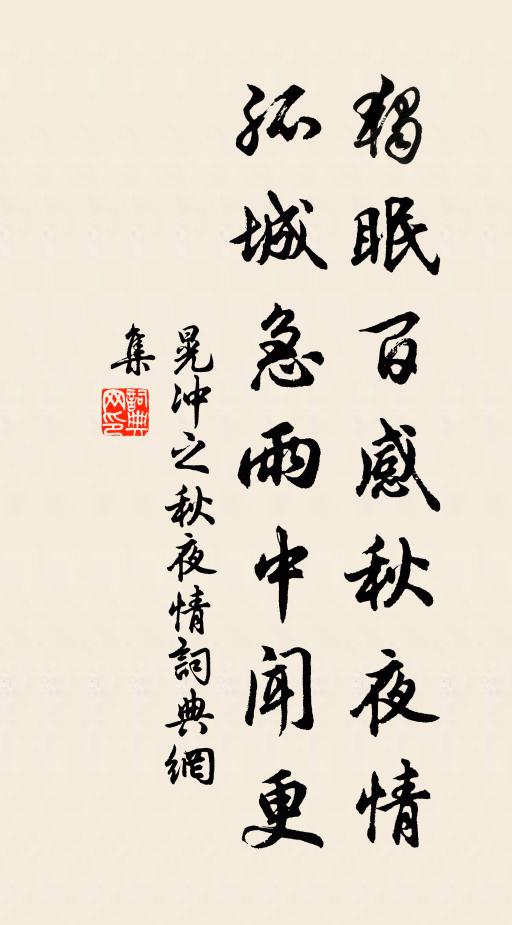 獨眠百感秋夜情
孤城急雨中聞更
晁沖之秋夜情詞典網
集
詞典
网印